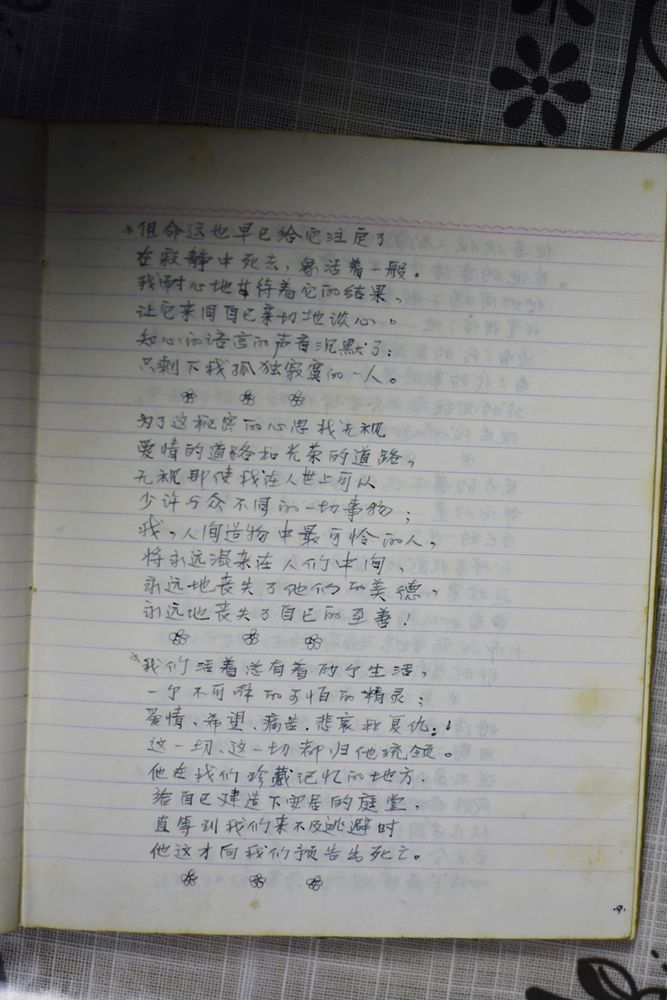 *但命运也早已给它注定了
在寂静中死去，象活着一般。
我耐心地等待着它的结果，
让它来同自己亲切地谈心。
知心的语言的声音沉默了：
只剩下我孤独寂寞的一人。
为了这秘密的心思我无视
爱情的道路和光荣的道路，
无视那使我在人世上可以
少许与众不同的一切事物；
我，人间造物中最可怜的人，
将永远混杂在人们中间，
永远地丧失了他们的美德，
永远地丧失了自己的至善！
*我们活着总有着两个生活，
一个不可的可怕的精灵；
爱情、希望、痛苦、悲哀和复仇：
这一切、这一切都归他统领。
他在我们珍藏记忆的地方，
给自己建造下居的庭堂，
直等到我们来不及逃避时
他这才向我们预告出死亡。
·9·